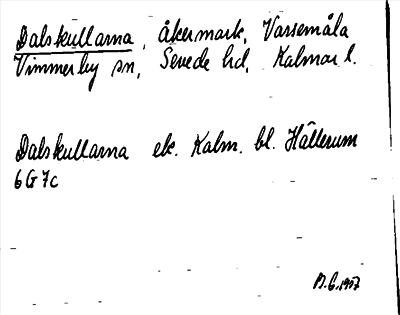 Dalskullarna, åkermark, Varsemåla
Vimmerby sn, Sevede hd, Kalmar l.
Dalskullarna ek. Kalm. bl. Hällerum
6G7c
B.G. 1957